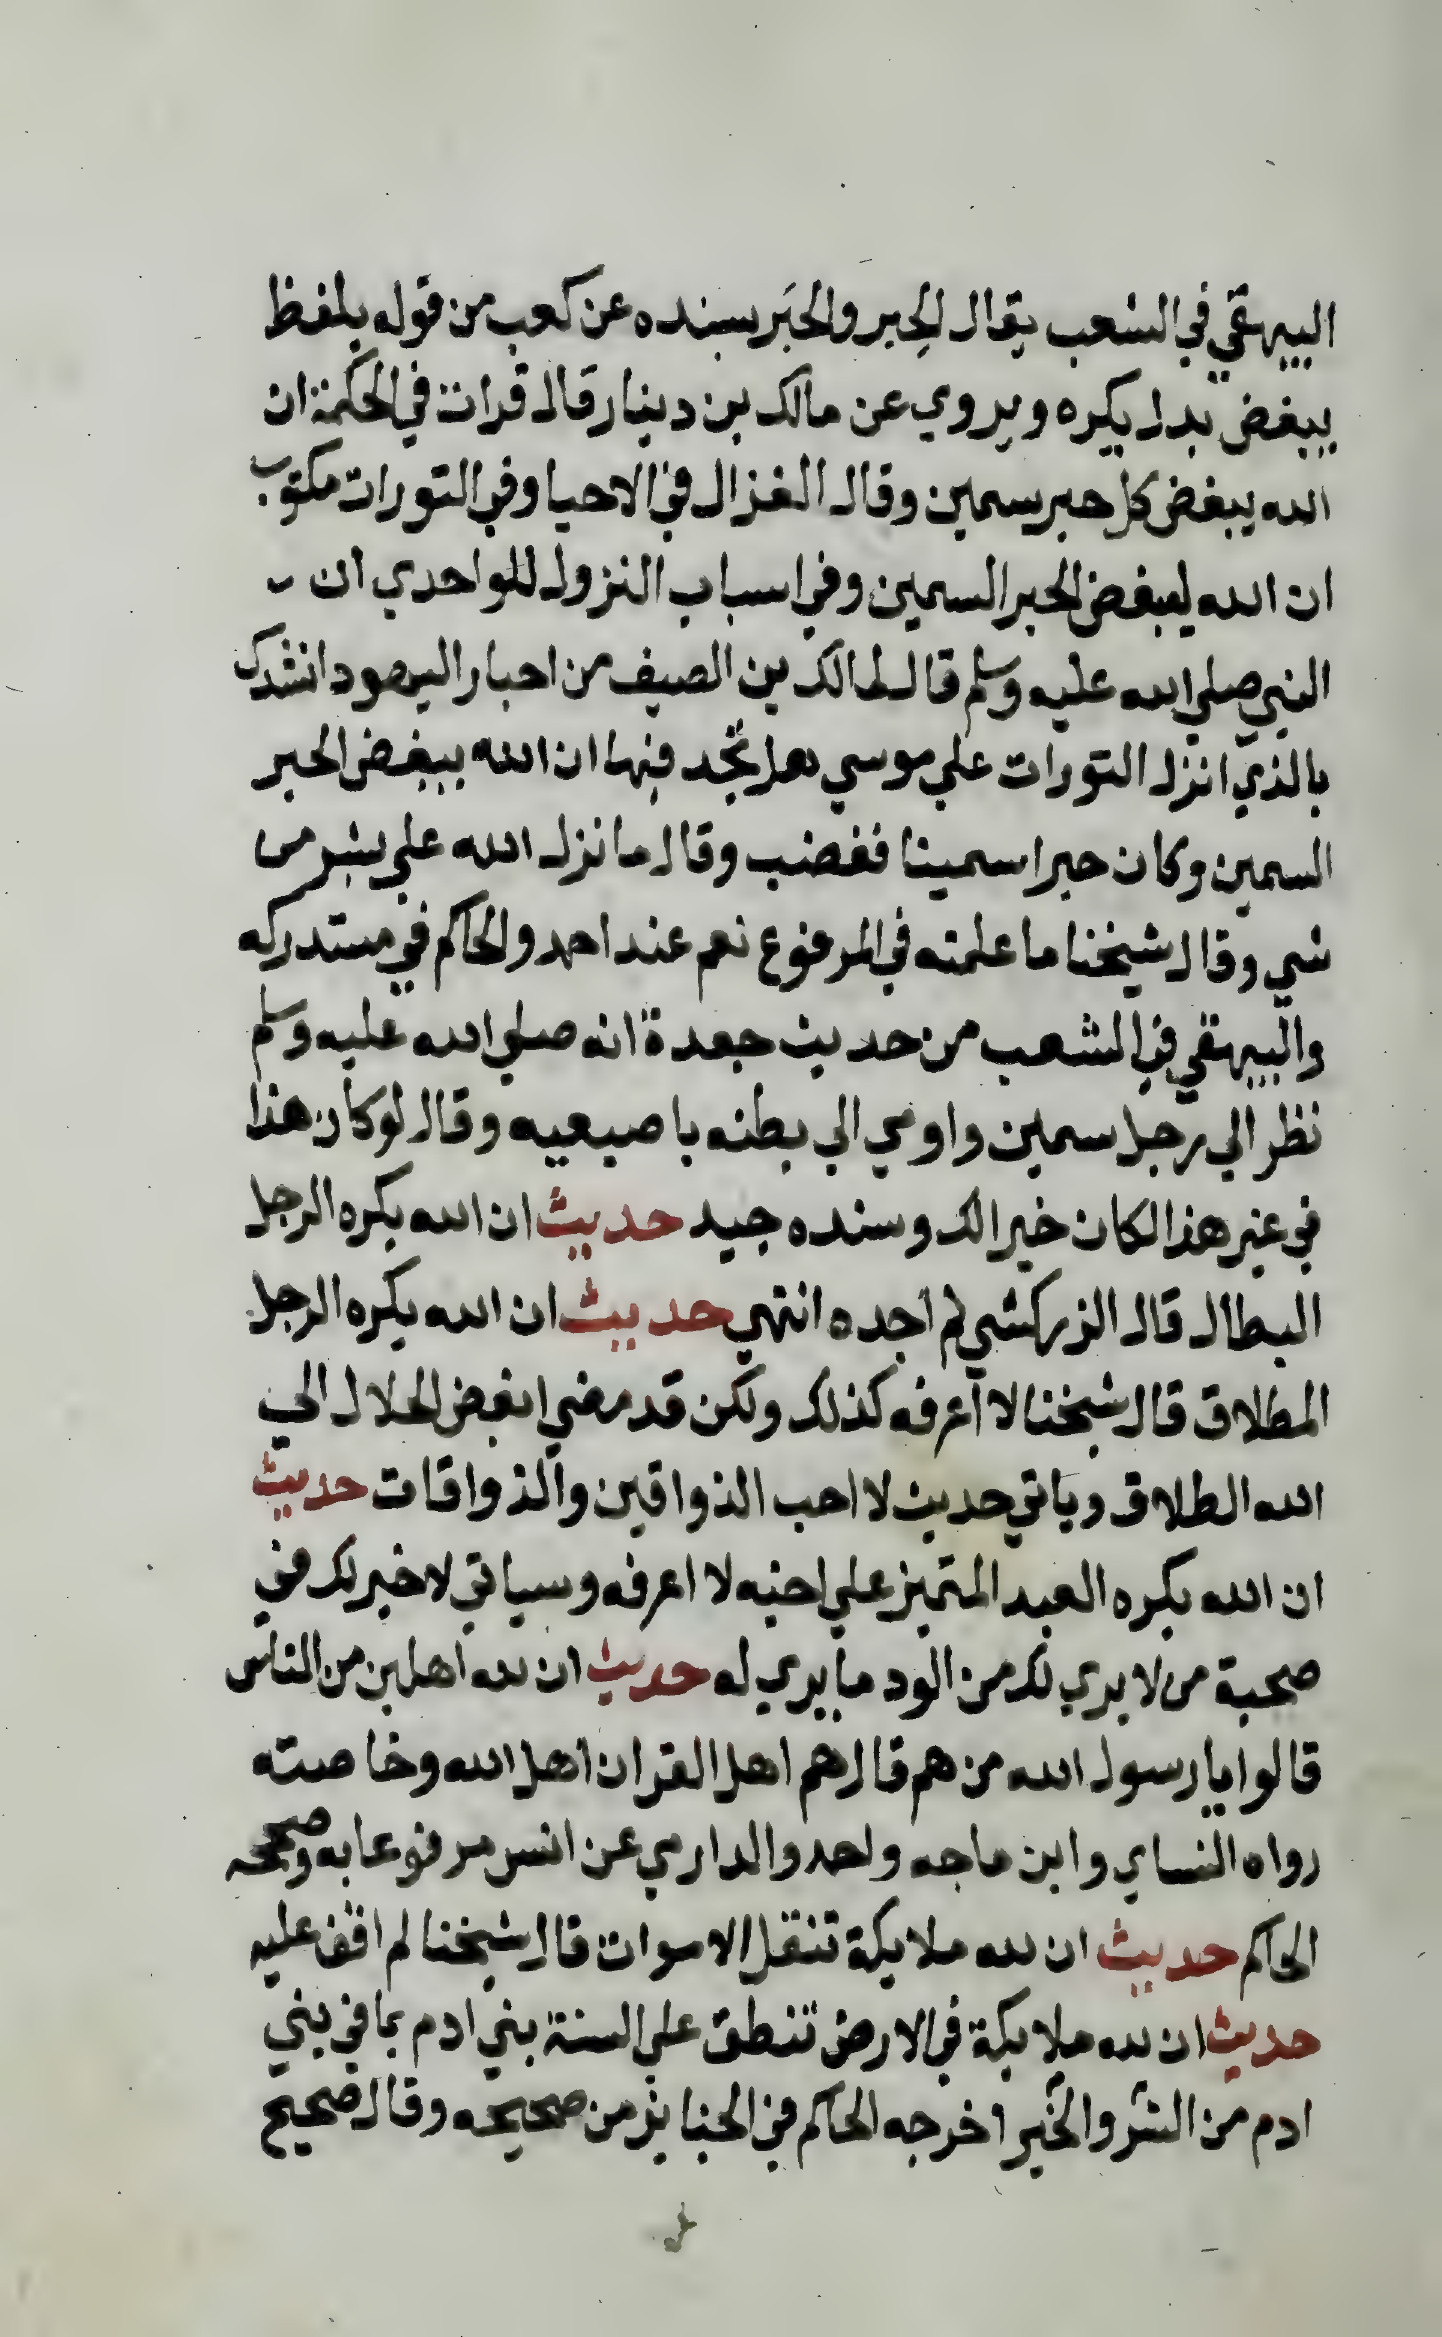 البيهقي في الشعب يقال الحِبر والحَبر بسنده عن كعب من قوله بلفظ
يبغض بدل يكره ويروي عن مالك بن دينار قال قرات في الحكمة ان
الله يبغض كل حبر سمين وقال الغزال في الاحيا وفي التورات مكتوب
ان الله ليبغض الحبر السمين وفي اسباب النزول للواحدي ان
النبي صلي الله عليه وسلم قال لمالك بن الصيف من احبار اليهود انشدك
بالذي انزل التورات علي موسي هل تجد فيها ان الله يبغض الحبر
السمين وكان حبرا سمينا فغضب وقال ما نزل الله علي بشر من
شي وقال شيخنا ما علمته في المرفوع نعم عند احمد والحاكم في مستدركه
والبيهقي في الشعب من حديث جعدة انه صلي الله عليه وسلم
نظر الي رجل سمين واومي الي بطنه باصبعيه وقال لو كان هذا
في غير هذا لكان خيرا لك وسنده جيد حديث ان الله يكره الرجل
البطال قال الزركشي لم اجده انتهي حديث ان الله يكره الرجل
المطلاق قال شيخنا لا اعرفه كذلك ولكن قد مضي ابغض الحلال الي
الله الطلاق وياتي حديث لا احب الذواقين والذواقات حديث
ان الله يكره العبد المتميز علي اخيه لا اعرفه وسياتي لا خير لك في
صحبة من لا يري لك من الود ما يري له حديث ان لله اهلين من الناس
قالوا يا رسول الله من هم قال هم اهل القران اهل الله وخاصته
رواه النساي وابن ماجه واحمد والدارمي عن انس مرفوعا به وصححه
الحاكم حديث ان لله ملايكة تنقل الاموات قال شيخنا لم اقف عليه
حديث ان لله ملايكة في الارض تنطق علي السنة بني ادم بما في بني
ادم من الشر والخير اخرجه الحاكم في الجنايز من صحيحه وقال صحيح